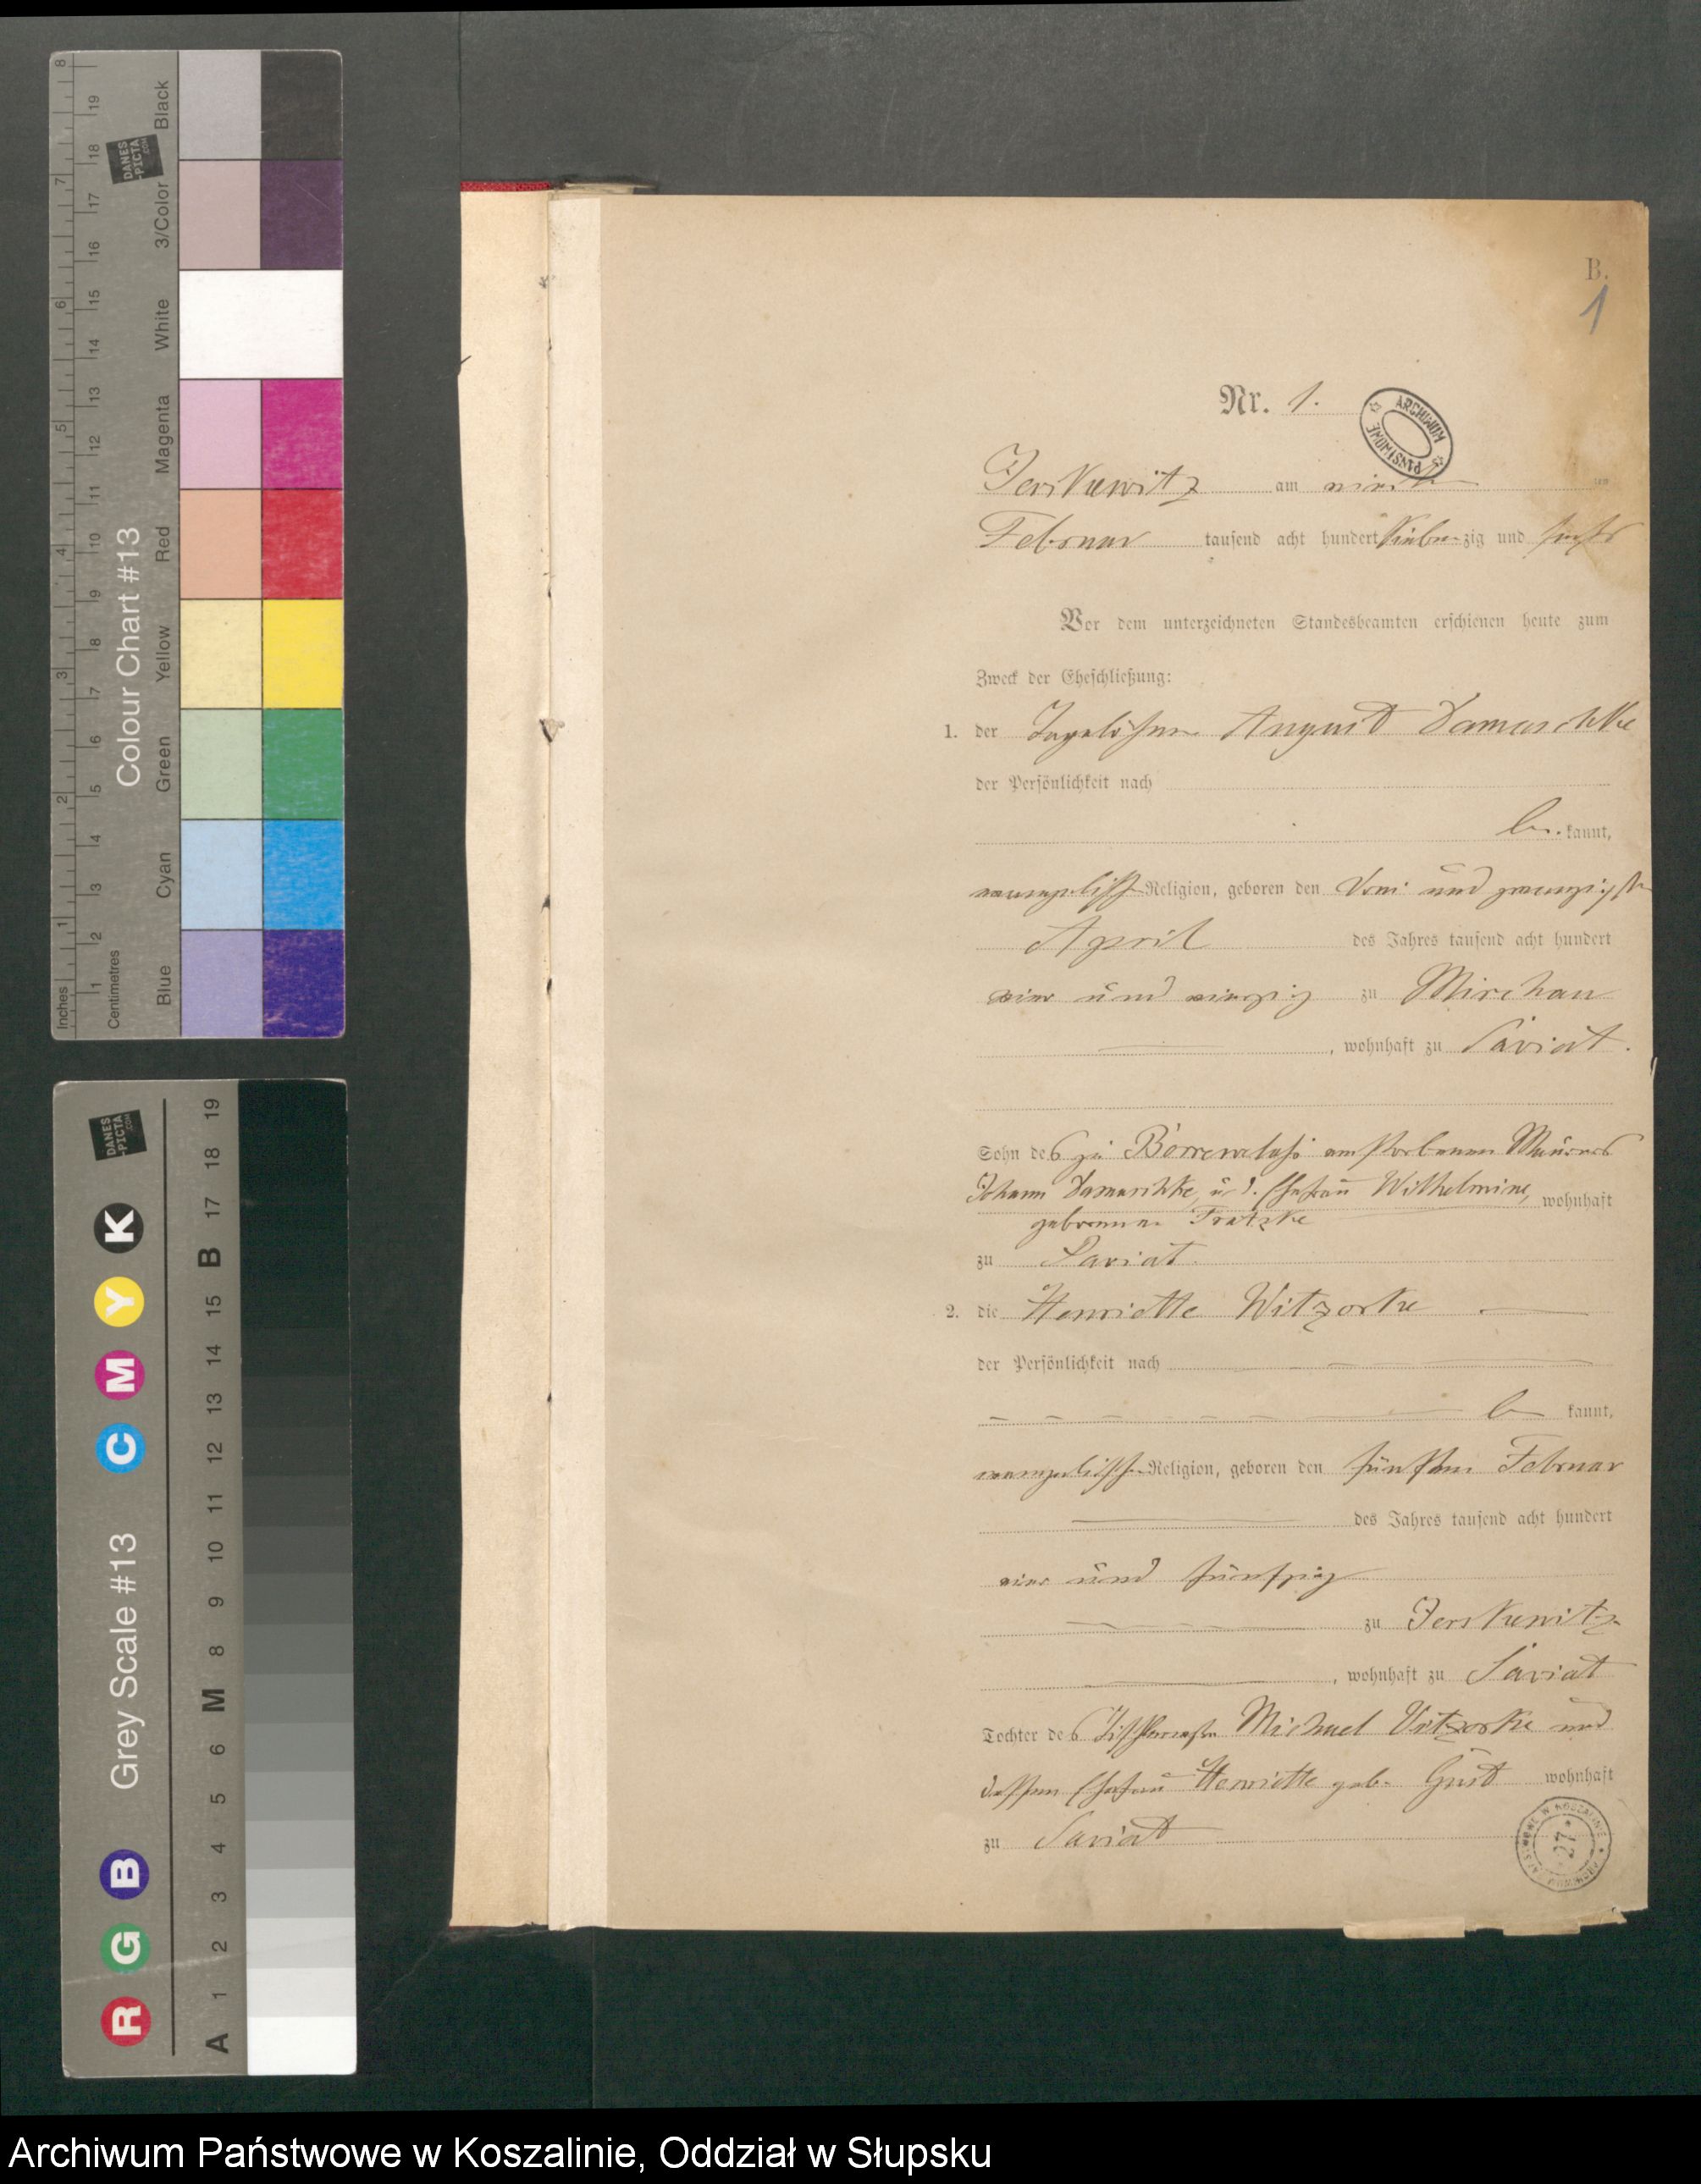 B.
1
Nr. 1.
ARCHIWUM PAŃSTWOWE
Jerskewitz am vierten
Februar tausend acht hundert siebenzig und fünf
Vor dem unterzeichneten Standesbeamten erschienen heute zum
Zweck der Eheschließung:
1. der Tagelöhner August Damaschke
der Persönlichkeit nach
be kannt,
evangelischer Religion, geboren den drei und zwanzigsten
April des Jahres tausend acht hundert
vier und vierzig zu Mirchau
, wohnhaft zu Saviat.
Sohn des zu verstorbenen
Johann Damaschke, u. d. Ehefrau Wilhelmine, wohnhaft
geborenen Tratzke
zu Saviat.
2. die Henriette Witzorke
der Persönlichkeit nach
be kannt,
evangelischer Religion, geboren den fünften Februar
des Jahres tausend acht hundert
vier und fünfzig
zu Jerskewitz
, wohnhaft zu Saviat
Tochter des Michael Vitzorke und
dessen Ehefrau Henriette geb. Gust wohnhaft
zu Saviat
27
Inches
Centimetres
Colour Chart #13
Blue Cyan Green Yellow Red Magenta White 3/Color Black
DANES
-PICTA
.COM
1 2 3 4 5 6 7 8
1 2 3 4 5 6 7 8 9 10 11 12 13 14 15 16 17 18 19
Grey Scale #13
R G B C M Y K
DANES
-PICTA
.COM
A 1 2 3 4 5 6 M 8 9 10 11 12 13 14 15 B 17 18 19
Archiwum Państwowe w Koszalinie, Oddział w Słupsku